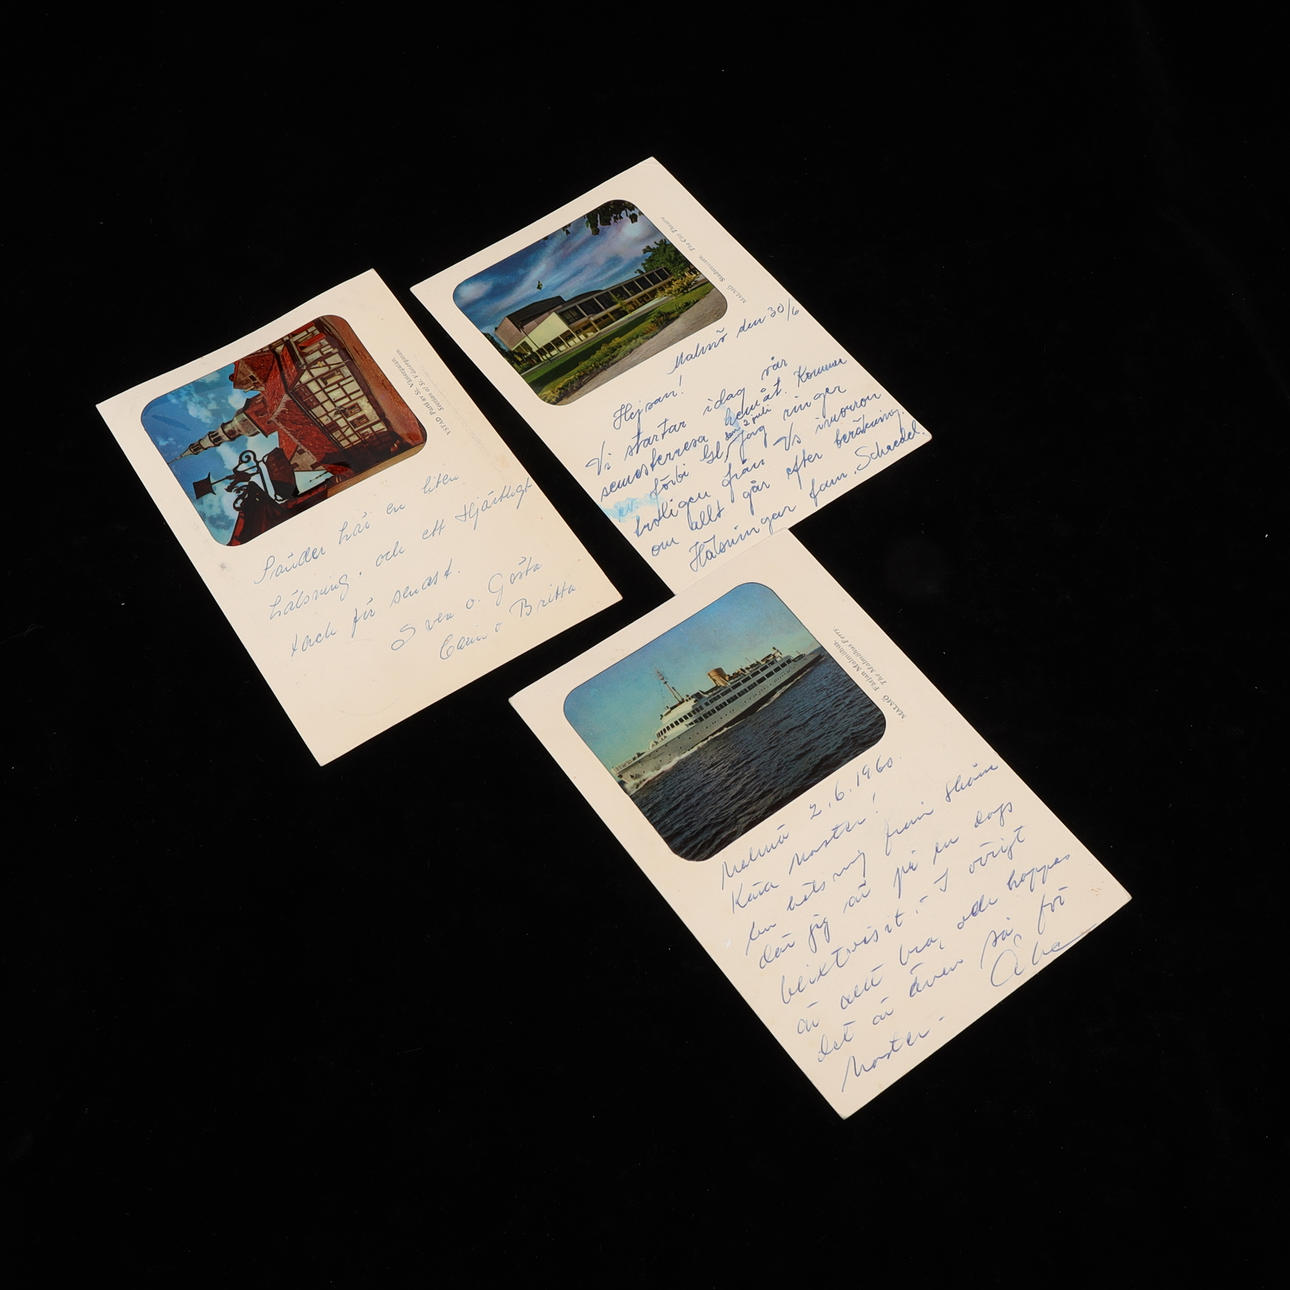 YSTAD Parti av St. Västergatan.
Section of St. Västergatan.
Sänder här en liten
hälsning, och ett Hjärtligt
tack för senast.
Sven o. Gösta
o Britta
MALMÖ Stadsteatern. The City Theatre
Malmö den 30/6
Hejsan!
Vi startar idag vår
semesterresa hemåt. Kommer
förbi den 2 juli
Jag ringer
troligen från imorron
om allt går efter beräkning.
Hälsningar fam. Schaedel.
MALMÖ Färjan Malmöhus.
The Malmöhus Ferry
Malmö 2.6.1960.
Kära Moster!
En hälsning från Skåne
där jag är på en dags
blixtvisit. - I övrigt
är allt bra, och hoppas
det är även så för
Moster -